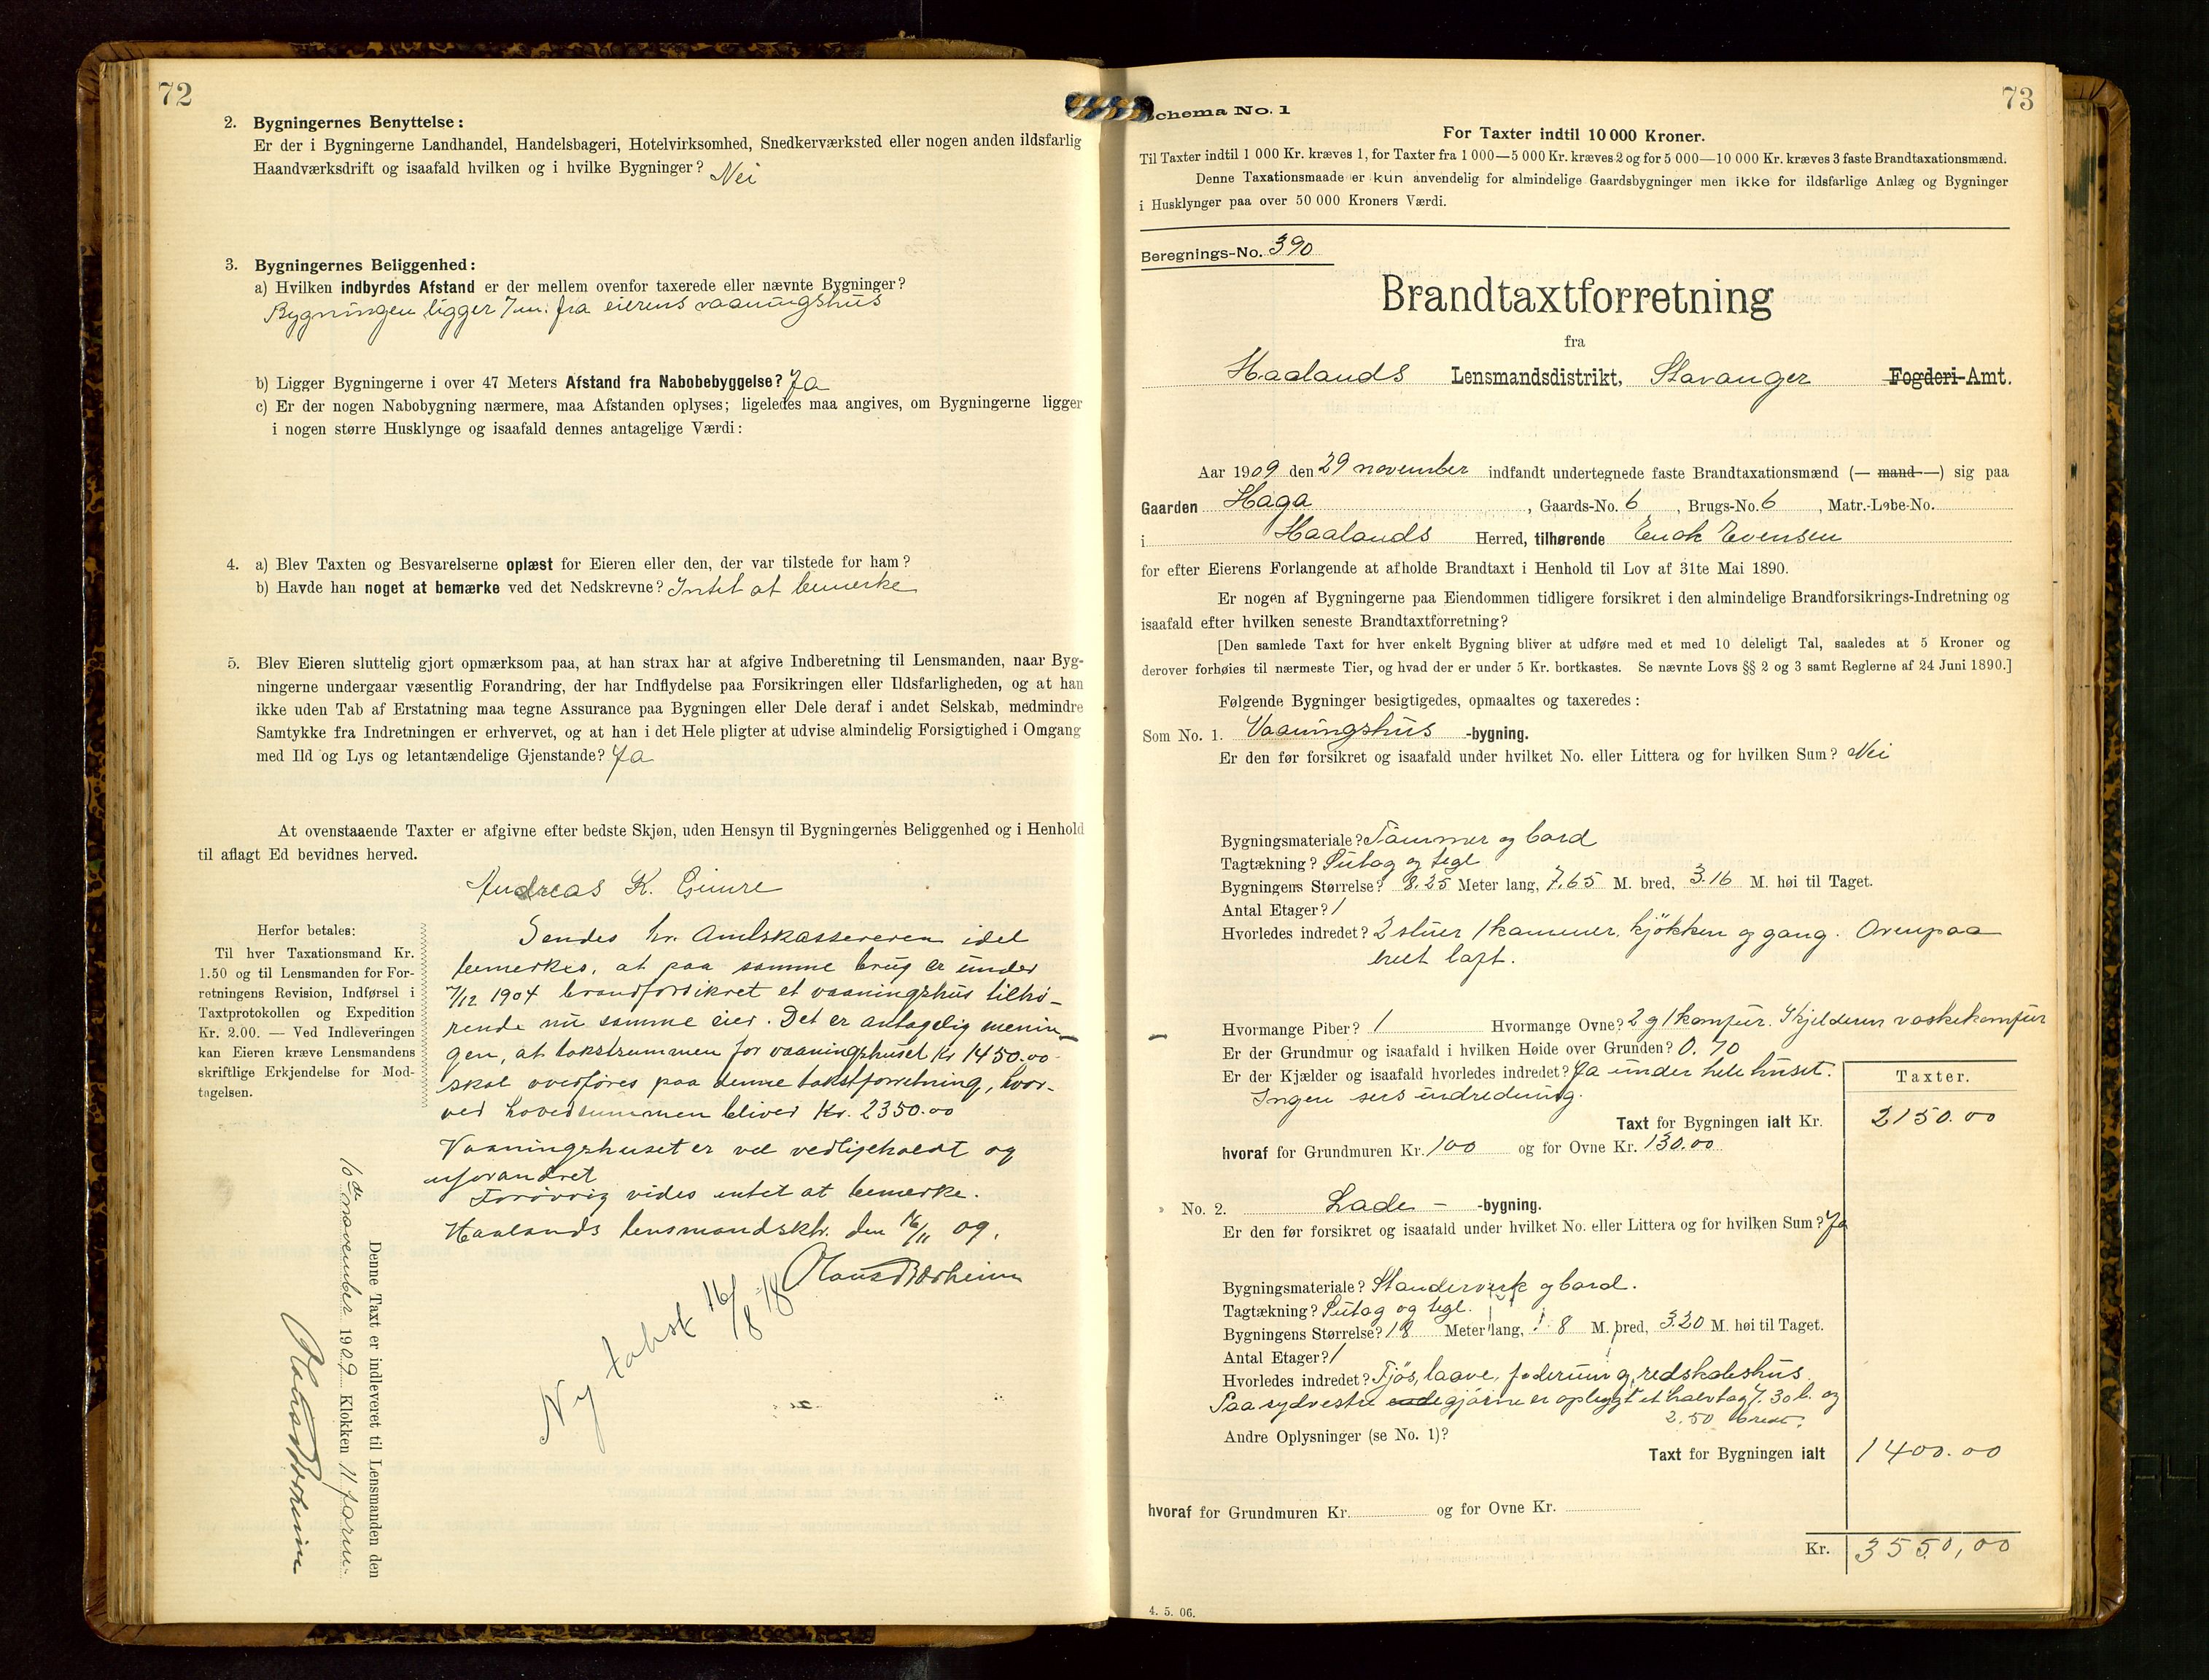 72
2. Bygningernes Benyttelse:
Er der i Bygningerne Landhandel, Handelsbageri, Hotelvirksomhed, Snedkerværksted eller nogen anden ildsfarlig
Haandværksdrift og isaafald hvilken og i hvilke Bygninger? Nei
3. Bygningernes Beliggenhed:
a) Hvilken indbyrdes Afstand er der mellem ovenfor taxerede eller nævnte Bygninger?
Bygningen ligger 7 m. fra eierens vaaningshus
b) Ligger Bygningerne i over 47 Meters Afstand fra Nabobebyggelse? Ja
c) Er der nogen Nabobygning nærmere, maa Afstanden oplyses; ligeledes maa angives, om Bygningerne ligger
i nogen større Husklynge og isaafald dennes antagelige Værdi:
4. a) Blev Taxten og Besvarelserne oplæst for Eieren eller den, der var tilstede for ham?
b) Havde han noget at bemærke ved det Nedskrevne? Intet at bemerke
5. Blev Eieren sluttelig gjort opmærksom paa, at han strax har at afgive Indberetning til Lensmanden, naar Byg-
ningerne undergaar væsentlig Forandring, der har Indflydelse paa Forsikringen eller Ildsfarligheden, og at han
ikke uden Tab af Erstatning maa tegne Assurance paa Bygningen eller Dele deraf i andet Selskab, medmindre
Samtykke fra Indretningen er erhvervet, og at han i det Hele pligter at udvise almindelig Forsigtighed i Omgang
med Ild og Lys og letantændelige Gjenstande? Ja
At ovenstaaende Taxter er afgivne efter bedste Skjøn, uden Hensyn til Bygningernes Beliggenhed og i Henhold
til aflagt Ed bevidnes herved.
Andreas K. Gimre
Herfor betales:
Til hver Taxationsmand Kr.
1.50 og til Lensmanden for For-
retningens Revision, Indførsel i
Taxtprotokollen og Expedition
Kr. 2.00. — Ved Indleveringen
kan Eieren kræve Lensmandens
skriftlige Erkjendelse for Mod-
tagelsen.
Sendes hr. Amtskassereren idet
bemerkes, at paa samme brug er under
7/12 1904 brandforsikret et vaaningshus tilhø-
rende nu samme eier. Det er antagelig menin-
gen, at takstsummen for vaaningshuset Kr 1450.00
skal overføres paa denne takstforretning, hvor-
ved hovedsummen bliver Kr. 2350.00
Vaaningshuset er vel vedligeholdt og
uforandret
Forøvrig vides intet at bemerke.
Haalands lensmandsktr. den 16/11 09.
Olaus Børheim
Ny takst 16/8 18
Denne Taxt er indleveret til Lensmanden den
10de november 1909 Klokken 11 form.
Olaus Børheim
73
Schema No. 1
For Taxter indtil 10 000 Kroner.
Til Taxter indtil 1 000 Kr. kræves 1, for Taxter fra 1 000—5 000 Kr. kræves 2 og for 5 000—10 000 Kr. kræves 3 faste Brandtaxationsmænd.
Denne Taxationsmaade er kun anvendelig for almindelige Gaardsbygninger men ikke for ildsfarlige Anlæg og Bygninger
i Husklynger paa over 50 000 Kroners Værdi.
Beregnings-No. 390
Brandtaxtforretning
fra
Haalands Lensmandsdistrikt, Stavanger Fogderi-Amt.
Aar 1909 den 29 november indfandt undertegnede faste Brandtaxationsmænd (— mand —) sig paa
Gaarden Haga, Gaards-No. 6, Brugs-No. 6, Matr.-Løbe-No.
i Haalands Herred, tilhørende Enok Evensen
for efter Eierens Forlangende at afholde Brandtaxt i Henhold til Lov af 31te Mai 1890.
Er nogen af Bygningerne paa Eiendommen tidligere forsikret i den almindelige Brandforsikrings-Indretning og
isaafald efter hvilken seneste Brandtaxtforretning?
[Den samlede Taxt for hver enkelt Bygning bliver at udføre med et med 10 deleligt Tal, saaledes at 5 Kroner og
derover forhøies til nærmeste Tier, og hvad der er under 5 Kr. bortkastes. Se nævnte Lovs §§ 2 og 3 samt Reglerne af 24 Juni 1890.]
Følgende Bygninger besigtigedes, opmaaltes og taxeredes:
Som No. 1. Vaaningshus -bygning.
Er den før forsikret og isaafald under hvilket No. eller Littera og for hvilken Sum? Nei
Bygningsmateriale? Tømmer og bord
Tagtækning? Sutag og tegl
Bygningens Størrelse? 8.25 Meter lang, 7.65 M. bred, 3.16 M. høi til Taget.
Antal Etager? 1
Hvorledes indredet? 2 stuer 1 kammer, kjøkken og gang. Ovenpaa
helt loft.
Hvormange Piber? 1 Hvormange Ovne? 2 og 1 komfur. I kjelderen vaskekomfur
Er der Grundmur og isaafald i hvilken Høide over Grunden? 0.70
Er der Kjælder og isaafald hvorledes indredet? Ja under hele huset.
Ingen sers indredning.
Taxter.
Taxt for Bygningen ialt Kr. 2150.00
hvoraf for Grundmuren Kr. 100 og for Ovne Kr. 130.00
No. 2. Lade- -bygning.
Er den før forsikret og isaafald under hvilket No. eller Littera og for hvilken Sum? Ja
Bygningsmateriale? Standerverk og bord.
Tagtækning? Sutag og tegl.
Bygningens Størrelse? 18 Meter lang, 8 M. bred, 3.20 M. høi til Taget.
Antal Etager? 1
Hvorledes indredet? Fjøs, laave, foderum og redskabshus.
Paa sydvestre gjørne er oplegget et halvtag 7.30 l. og
2.50 bredt.
Andre Oplysninger (se No. 1)?
Taxt for Bygningen ialt 1400.00
hvoraf for Grundmuren Kr. og for Ovne Kr.
Kr. 3550,00
4. 5. 06.